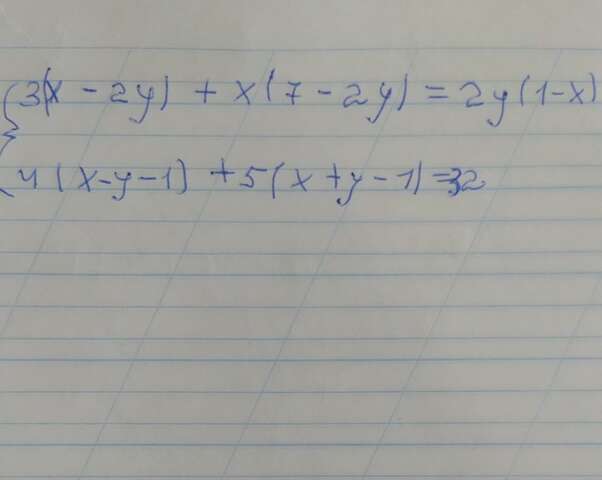 {3(x - 2y) + x(7 - 2y) = 2y(1-x)
4(x-y-1) + 5(x+y-1)=32